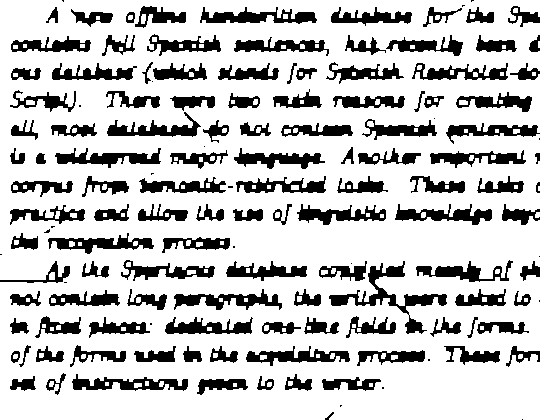 A new offline handwritten database for the Spa
contains full Spanish sentences, has recently been d
ous database (which stands for Spanish Restricted-do
Script). There were two main reasons for creating
all, most databases do not contain Spanish sentences,
is a widespread major language. Another important r
corpus from semantic-restricted tasks. These tasks a
practice and allow the use of linguistic knowledge beyo
the recognition process.
As the Spartacus database consisted mainly of sh
not contain long paragraphs, the writers were asked to
in fixed places: dedicated one-line fields in the forms.
of the forms used in the acquisition process. These for
set of instructions given to the writer.